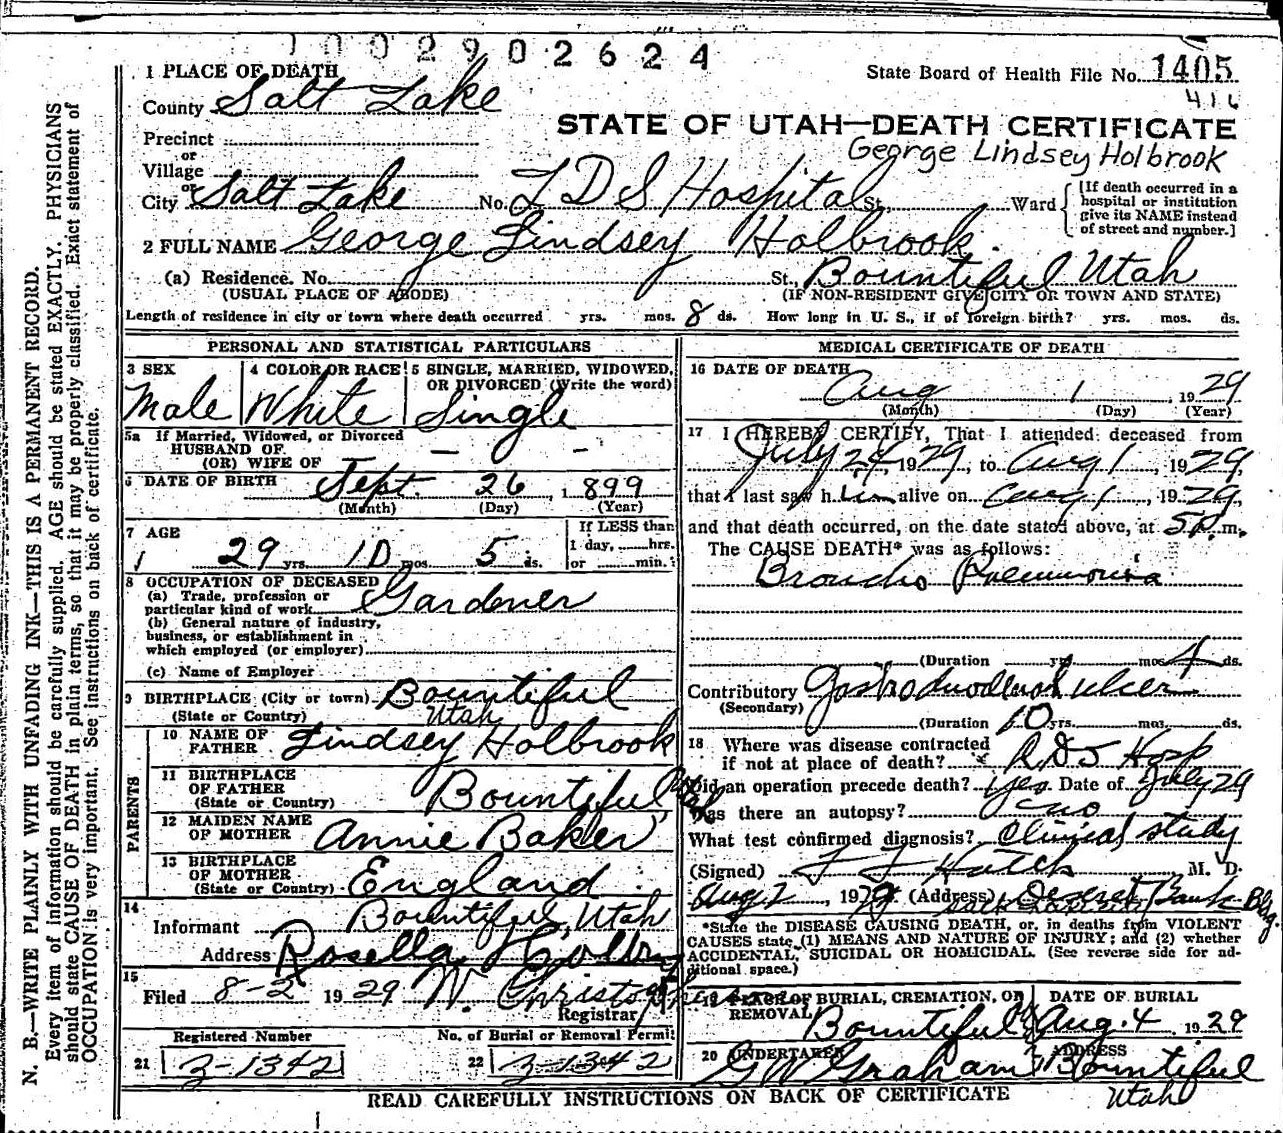 1002902624
1 PLACE OF DEATH
State Board of Health File No. 1405
416
County Salt Lake
STATE OF UTAH—DEATH CERTIFICATE
George Lindsey Holbrook
Precinct
or
Village
or
City Salt Lake No. L D S Hospital St. Ward [If death occurred in a hospital or institution give its NAME instead of street and number.]
2 FULL NAME George Lindsey Holbrook.
(a) Residence. No. St., Bountiful Utah
(USUAL PLACE OF ABODE) (IF NON-RESIDENT GIVE CITY OR TOWN AND STATE)
Length of residence in city or town where death occurred yrs. mos. 8 ds. How long in U. S., if of foreign birth? yrs. mos. ds.
PERSONAL AND STATISTICAL PARTICULARS
3 SEX
Male
4 COLOR OR RACE
White
5 SINGLE, MARRIED, WIDOWED,
OR DIVORCED (Write the word)
Single
5a If Married, Widowed, or Divorced
HUSBAND OF
(OR) WIFE OF — — -
6 DATE OF BIRTH Sept. 26, 1899
(Month) (Day) (Year)
7 AGE
29 yrs. 10 mos. 5 ds.
If LESS than
1 day, hrs.
or min.
8 OCCUPATION OF DECEASED
(a) Trade, profession or
particular kind of work Gardener
(b) General nature of industry,
business, or establishment in
which employed (or employer)
(c) Name of Employer
9 BIRTHPLACE (City or town) Bountiful
(State or Country) Utah
PARENTS
10 NAME OF
FATHER Lindsey Holbrook
11 BIRTHPLACE
OF FATHER
(State or Country) Bountiful Utah
12 MAIDEN NAME
OF MOTHER Annie Baker
13 BIRTHPLACE
OF MOTHER
(State or Country) England
14
Informant Bountiful, Utah
Address Rosella Holbrook
15
Filed 8-2 1929 W. Christopherson
Registrar
Registered Number No. of Burial or Removal Permit
21 3-1342 22 3-1342
MEDICAL CERTIFICATE OF DEATH
16 DATE OF DEATH
Aug 1, 1929
(Month) (Day) (Year)
17 I HEREBY CERTIFY, That I attended deceased from
July 24, 1929, to Aug 1, 1929,
that I last saw him alive on Aug 1, 1929,
and that death occurred, on the date stated above, at 5 P. m.
The CAUSE DEATH* was as follows:
Broncho Pneumonia
(Duration yrs. mos. 4 ds.
Contributory Gastroduodenal ulcer
(Secondary)
(Duration 10 yrs. mos. ds.
18 Where was disease contracted
if not at place of death? Hosp
Did an operation precede death? yes Date of July 29
Was there an autopsy? no
What test confirmed diagnosis? Clinical study
(Signed) F F Hatch M. D.
Aug 2, 1929 (Address) Deseret Bank Bldg.
*State the DISEASE CAUSING DEATH, or, in deaths from VIOLENT
CAUSES state (1) MEANS AND NATURE OF INJURY; and (2) whether
ACCIDENTAL, SUICIDAL OR HOMICIDAL. (See reverse side for additional space.)
19 PLACE OF BURIAL, CREMATION, OR
REMOVAL Bountiful
DATE OF BURIAL
Aug. 4 1929
20 UNDERTAKER
G W Graham
ADDRESS
Bountiful
Utah
READ CAREFULLY INSTRUCTIONS ON BACK OF CERTIFICATE
N. B.—WRITE PLAINLY WITH UNFADING INK—THIS IS A PERMANENT RECORD.
Every item of information should be carefully supplied. AGE should be stated EXACTLY. PHYSICIANS
should state CAUSE OF DEATH in plain terms, so that it may be properly classified. Exact statement of
OCCUPATION is very important. See instructions on back of certificate.